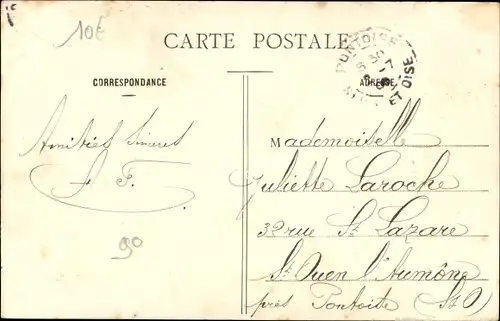 10€
CARTE POSTALE
PONTOISE
SEINE ET OISE
CORRESPONDANCE
ADRESSE
Amitiés Sincères
J. F.
90
Mademoiselle
Juliette Laroche
32 rue St Lazare
St Ouen l'Aumône
près Pontoise (S O)